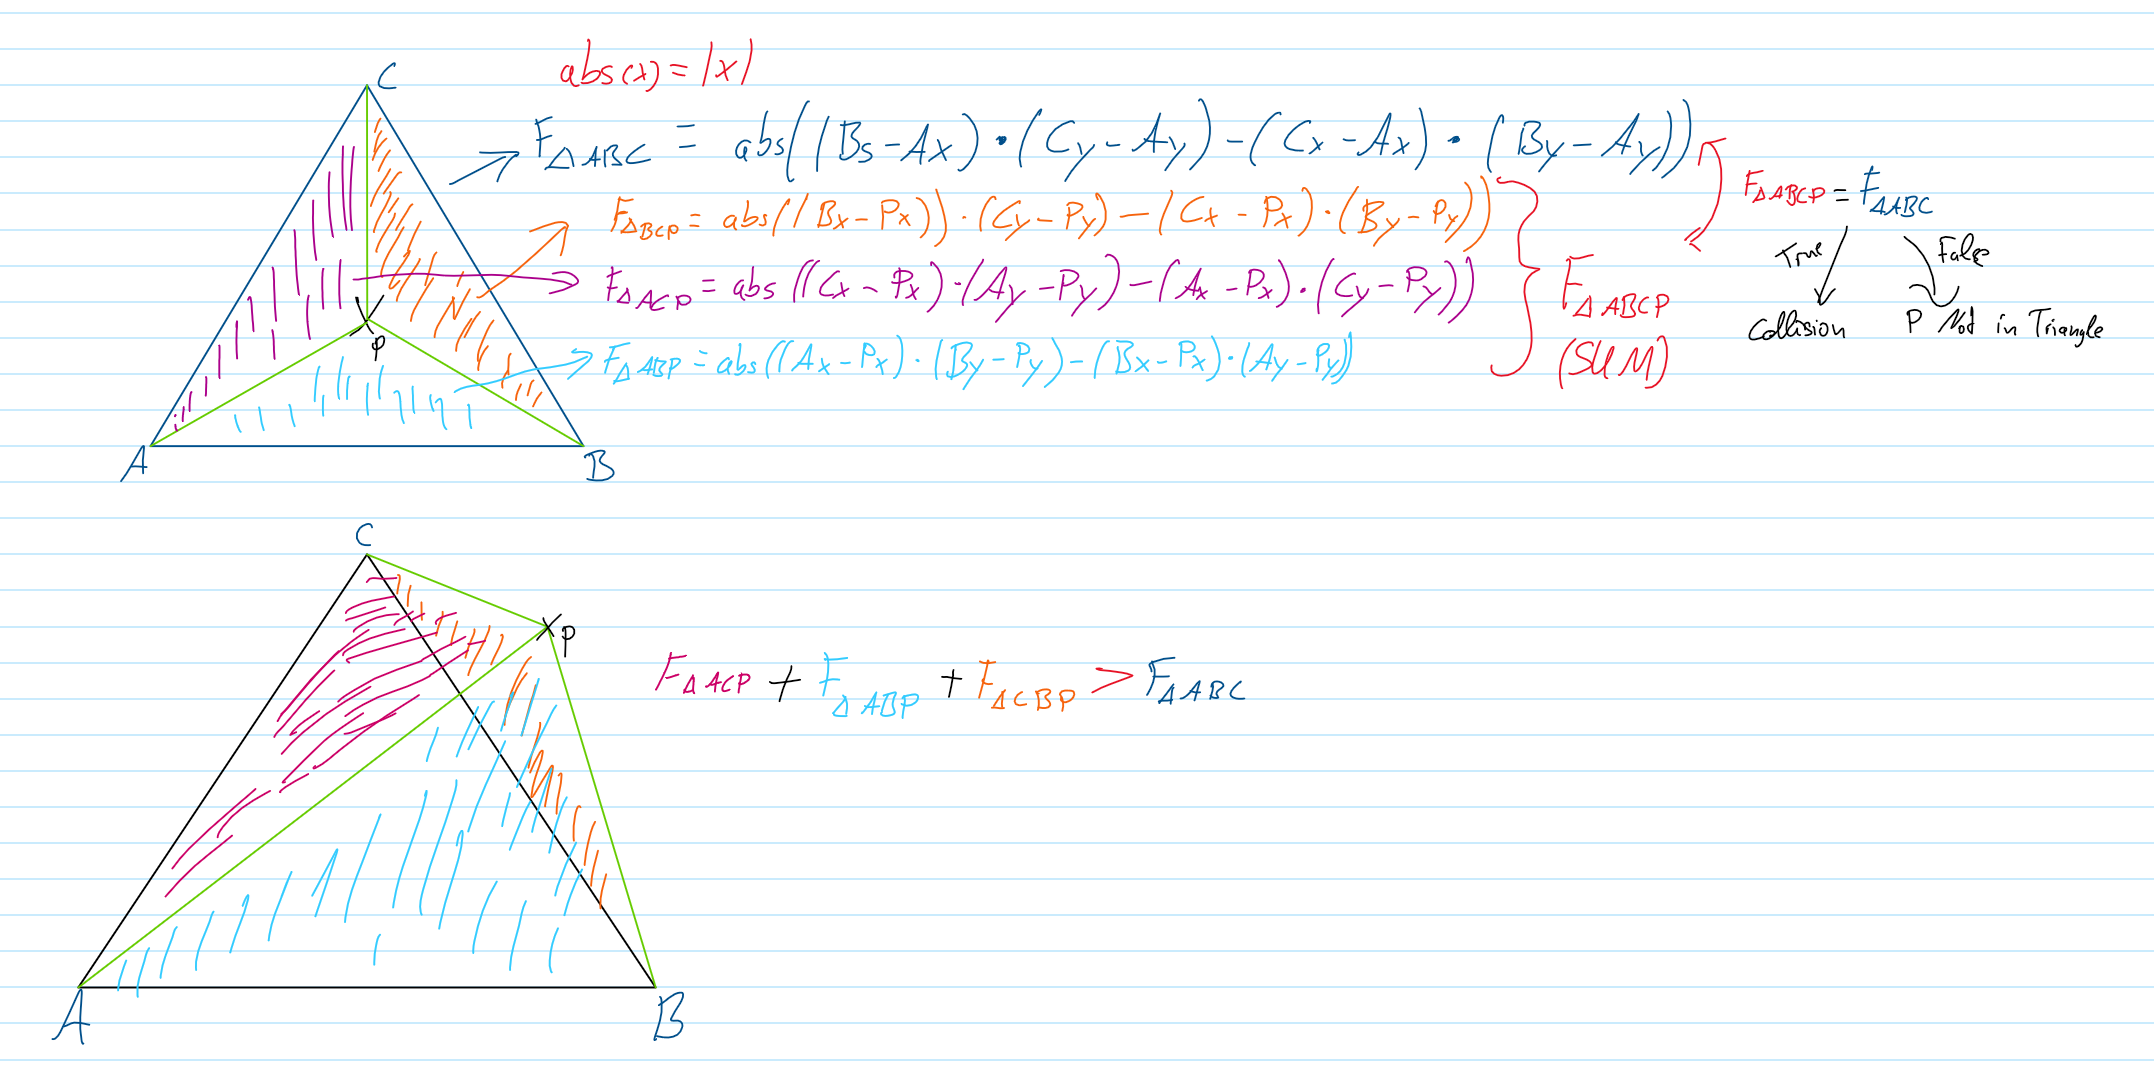 abs(x) = |x|
C
F△ABC = abs((Bs-Ax)·(Cy-Ay)-(Cx-Ax)·(By-Ay))
F△BCP = abs((Bx-Px))·(Cy-Py)-(Cx-Px)·(By-Py))
F△ACP = abs((Cx-Px)·(Ay-Py)-(Ax-Px)·(Cy-Py))
F△ABP = abs((Ax-Px)·(By-Py)-(Bx-Px)·(Ay-Py))
F△ABCP
(SUM)
F△ABCP = F△ABC
True False
Collision P Not in Triangle
P
A B
C
P
F△ACP + F△ABP + F△CBP > F△ABC
A B